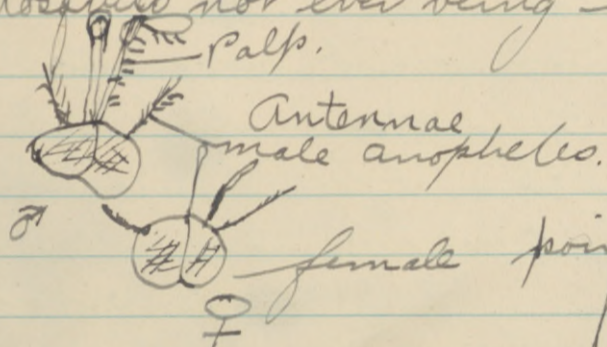 not ever being
Palp.
Antennae
male anopheles.
♂
female
♀